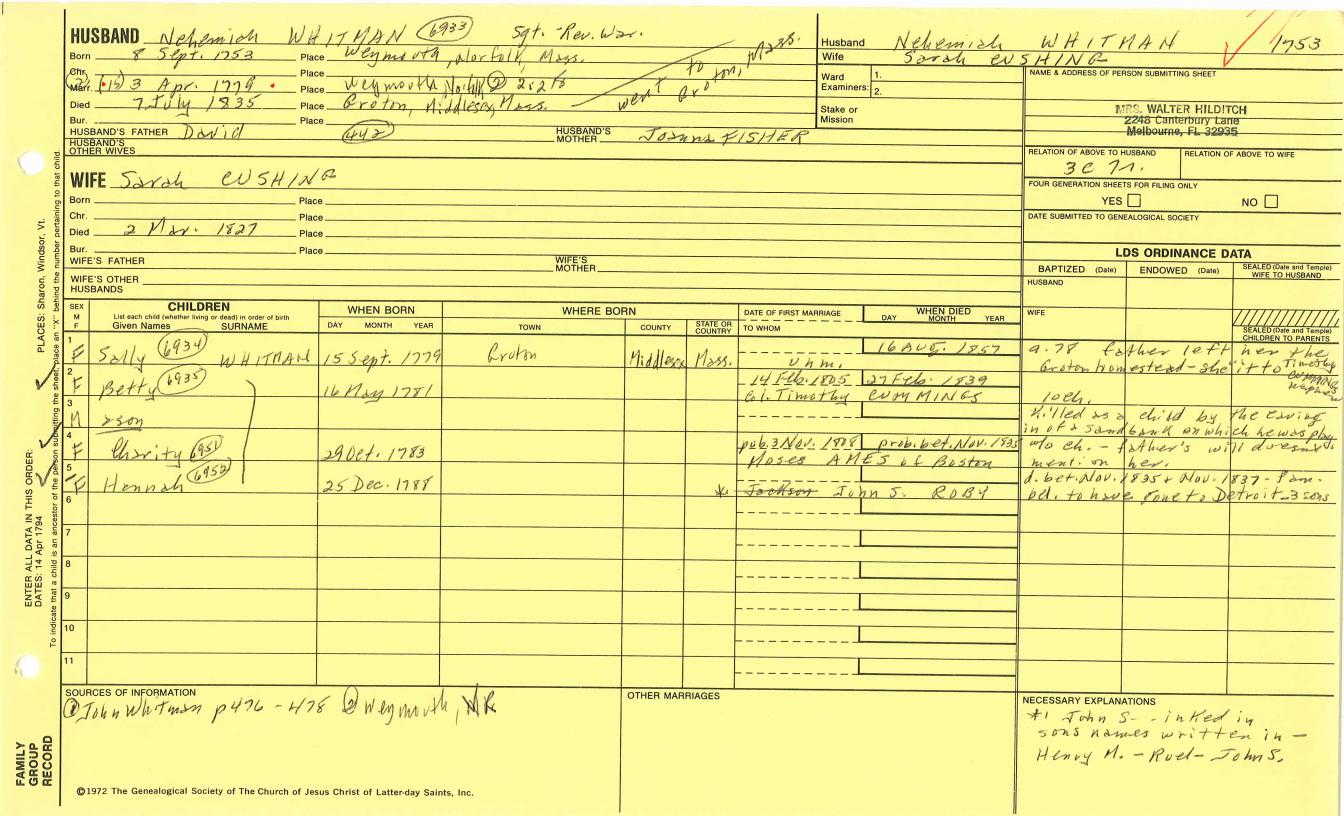 HUSBAND Nehemiah WHITMAN 6933 Sgt. - Rev. War.
Born 8 Sept. 1753 Place Weymouth, Norfolk, Mass.
Chr. Place
Marr. 3 Apr. 1779 Place Weymouth, Norfolk ② 2:218
Died 7 July 1835 Place Groton, Middlesex, Mass.
went to Groton, Mass.
Bur. Place
HUSBAND'S FATHER David 442 HUSBAND'S MOTHER Joanna FISHER
HUSBAND'S OTHER WIVES
Husband Nehemiah WHITMAN 1753
Wife Sarah CUSHING
Ward Examiners: 1.
2.
Stake or Mission
NAME & ADDRESS OF PERSON SUBMITTING SHEET
MRS. WALTER HILDITCH
2248 Canterbury Lane
Melbourne, FL 32935
RELATION OF ABOVE TO HUSBAND RELATION OF ABOVE TO WIFE
3C 7r.
FOUR GENERATION SHEETS FOR FILING ONLY
YES NO
DATE SUBMITTED TO GENEALOGICAL SOCIETY
WIFE Sarah CUSHING
Born Place
Chr. Place
Died 2 Mar. 1827 Place
Bur. Place
WIFE'S FATHER WIFE'S MOTHER
WIFE'S OTHER HUSBANDS
LDS ORDINANCE DATA
BAPTIZED (Date) ENDOWED (Date) SEALED (Date and Temple) WIFE TO HUSBAND
HUSBAND
WIFE
SEALED (Date and Temple) CHILDREN TO PARENTS
SEX M F
CHILDREN
List each child (whether living or dead) in order of birth
Given Names SURNAME
WHEN BORN
DAY MONTH YEAR
WHERE BORN
TOWN COUNTY STATE OR COUNTRY
DATE OF FIRST MARRIAGE
TO WHOM
WHEN DIED
DAY MONTH YEAR
1 F Sally 6934 WHITMAN 15 Sept. 1779 Groton Middlesex Mass. unm. 16 Aug. 1857
a. 78 father left her the
Groton homestead - she it to Timothy CUMMINGS nephew
2 F Betty 6935 16 May 1781 14 Feb. 1805 27 Feb. 1839
Col. Timothy CUMMINGS 10 ch.
3 M a son
killed as a child by the caving
in of a sand bank on which he was play.
4 F Charity 6951 29 Oct. 1783 pub. 3 Nov. 1808 prob. bet. Nov. 1835
Moses AMES of Boston
w/o ch. - father's will doesn't
mention her.
5 F Hannah 6952 25 Dec. 1788
* Jackson John S. ROBY
d. bet. Nov. 1835 & Nov. 1837 - fam.
bel. to have gone to Detroit - 3 sons
6
7
8
9
10
11
SOURCES OF INFORMATION
① John Whitman p 476 - 478 ② Weymouth, VR
OTHER MARRIAGES
NECESSARY EXPLANATIONS
*1 John S. - inked in
sons names written in -
Henry M. - Ruel - John S.
©1972 The Genealogical Society of The Church of Jesus Christ of Latter-day Saints, Inc.
FAMILY GROUP RECORD
ENTER ALL DATA IN THIS ORDER:
DATES: 14 Apr 1794
PLACES: Sharon, Windsor, Vt.
To indicate that a child is an ancestor of the person submitting the sheet, place an "X" behind the number pertaining to that child.